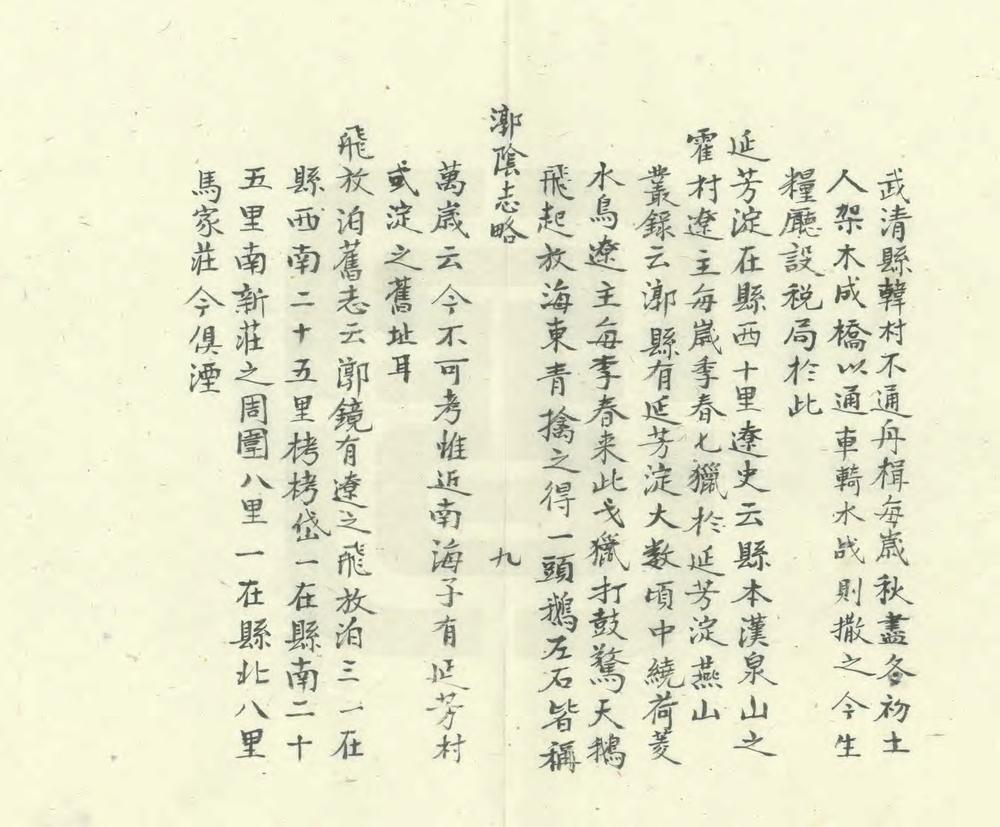 武清縣韓村不通舟楫每歲秋盡冬初土
人架木成橋以通車輢水战則撒之今生
糧廳設税局於此
延芳淀在縣西十里遼史云縣本漢泉山之
霍村遼主每歲季春弋獵於延芳淀燕山
叢錄云漷縣有延芳淀大数頃中繞荷菱
水鳥遼主每季春来此弋獵打鼓驚天鵝
飛起放海東青擒之得一頭鵝左右皆稱
漷陰志略
九
萬歲云今不可考惟近南海子有延芳村
或淀之舊址耳
飛放泊舊志云漷鏡有遼之飛放泊三一在
縣西南二十五里栲栲岱一在縣南二十
五里南新莊之周圍八里一在縣北八里
馬家莊今俱湮